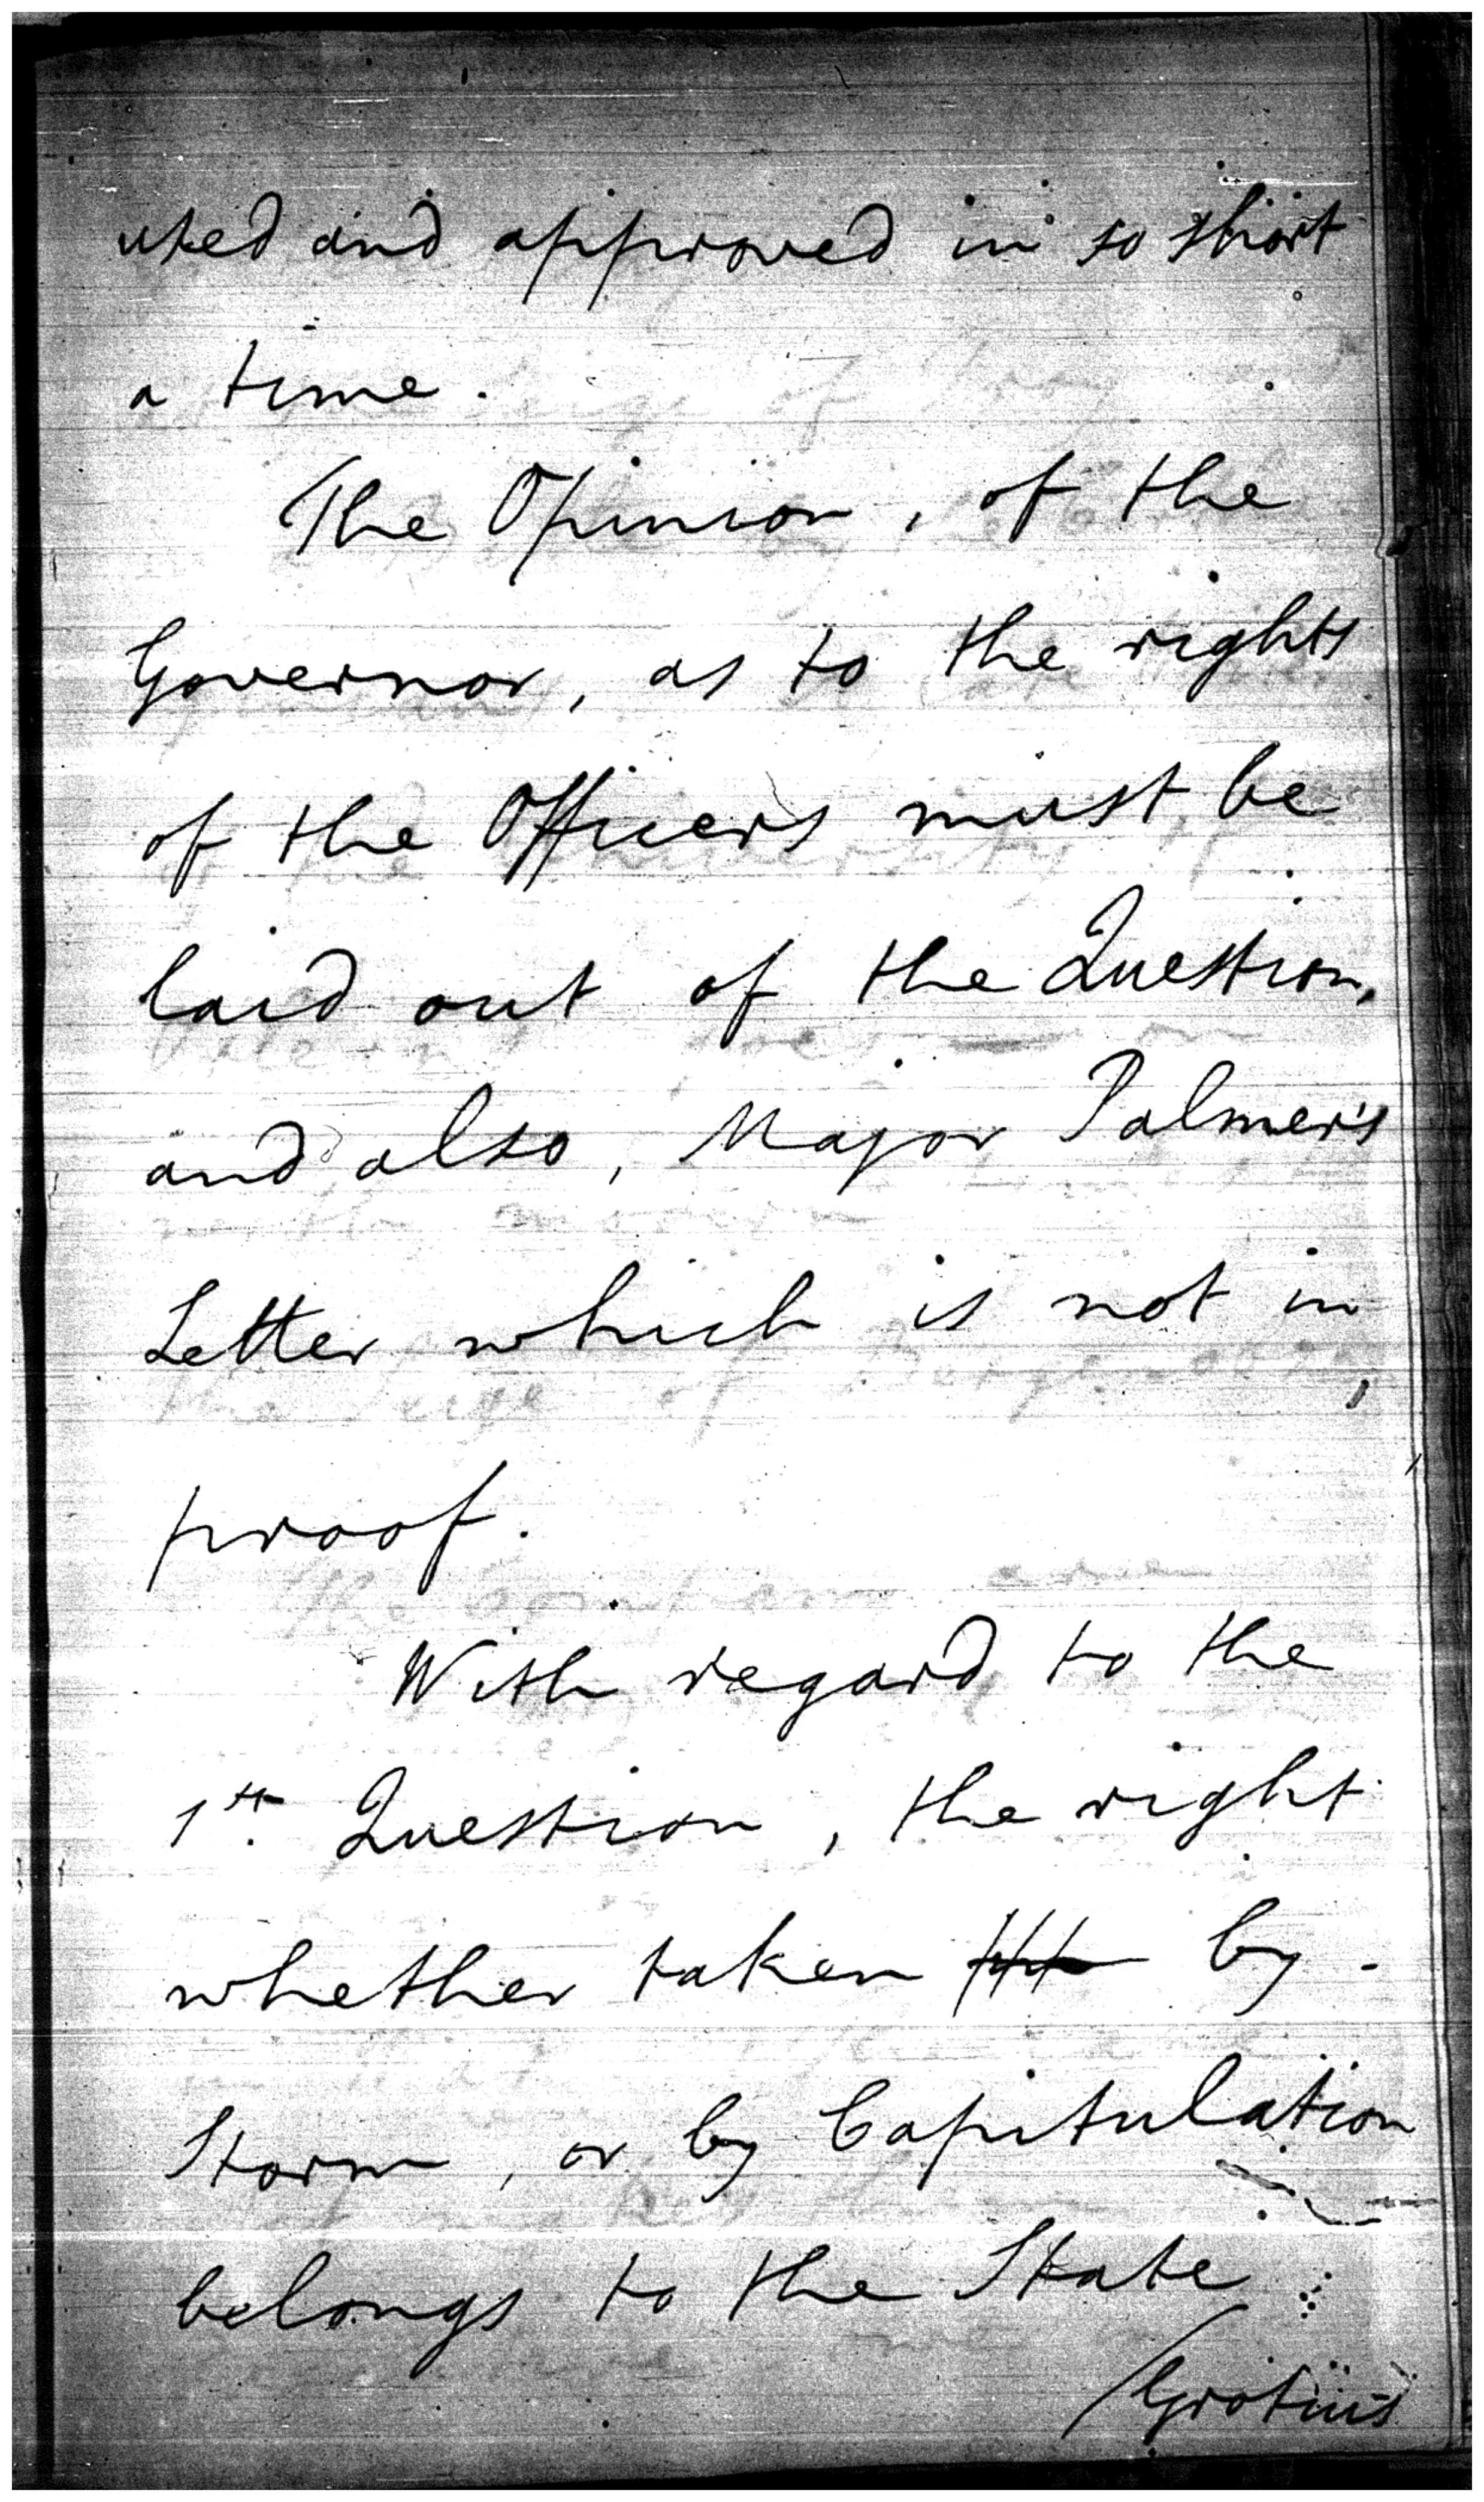 uted and approved in so short
a time.
The Opinion, of the
Governor, as to the rights
of the Officers must be
laid out of the Question,
and also, Major Palmer's
Letter which is not in
proof.
With regard to the
1st. Question, the right
whether taken by
Storm, or by Capitulation
belongs to the State :
/Grotius